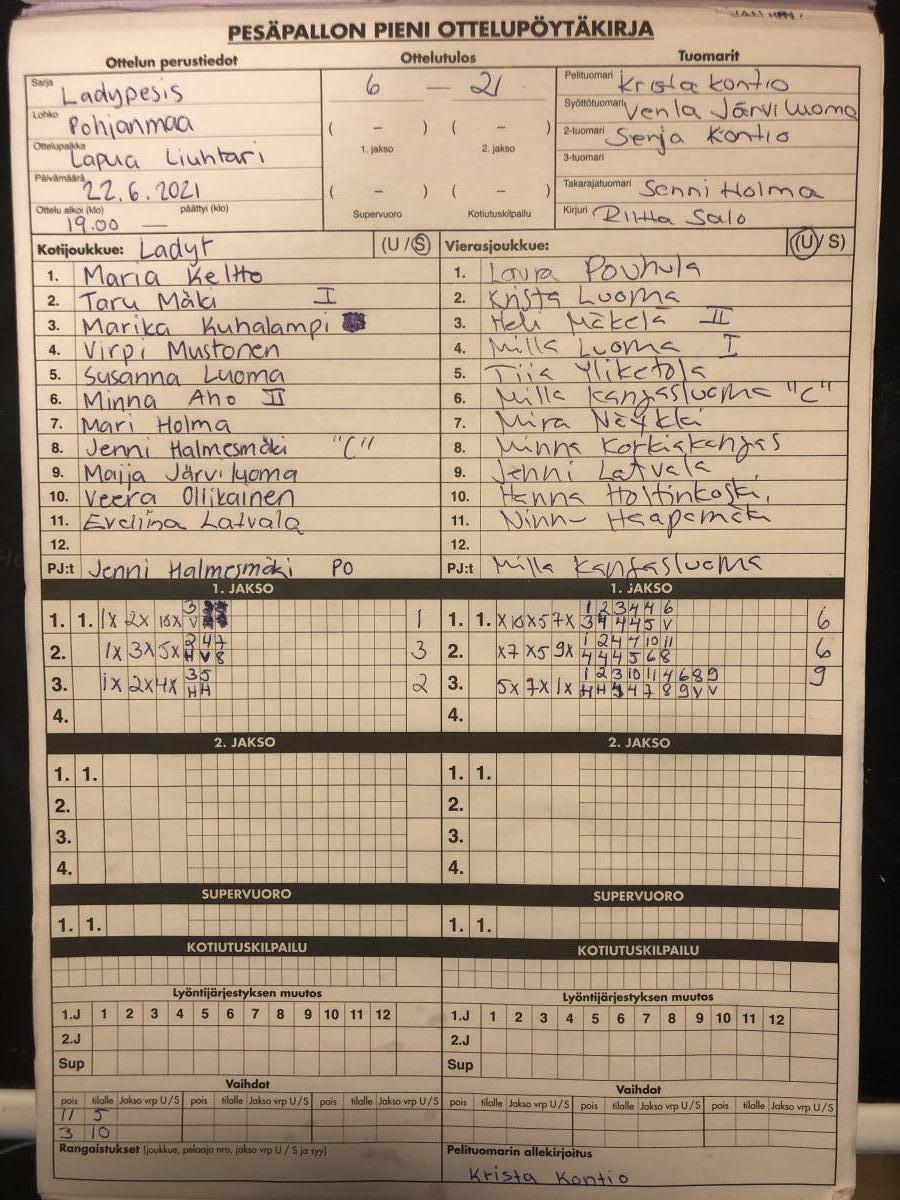 PESÄPALLON PIENI OTTELUPÖYTÄKIRJA
Ottelun perustiedot Ottelutulos Tuomarit
Sarja Ladypesis 6 — 21 Pelituomari Krista Kontio
Lohko Pohjanmaa ( – ) ( – ) Syöttötuomari Venla Järviluoma
Ottelupaikka Lapua Liuhtari 1. jakso 2. jakso 2-tuomari Senja Kontio
3-tuomari
Päivämäärä 22.6.2021 ( – ) ( – ) Takarajatuomari Senni Holma
Ottelu alkoi (klo) 19.00 — päättyi (klo) Supervuoro Kotiutuskilpailu Kirjuri Riitta Salo
Kotijoukkue: Ladyt (U / S) Vierasjoukkue: (U / S)
1. Maria Keltto 1. Laura Pouhula
2. Taru Mäki I 2. Krista Luoma
3. Marika Kuhalampi 3. Heli Mäkelä II
4. Virpi Mustonen 4. Milla Luoma I
5. Susanna Luoma 5. Tiia Yliketola
6. Minna Aho II 6. Milla Kangasluoma "C"
7. Mari Holma 7. Mira Näykki
8. Jenni Halmesmäki "C" 8. Minna Korkiakangas
9. Maija Järviluoma 9. Jenni Latvala
10. Veera Ollikainen 10. Henna Holtinkoski
11. Eveliina Latvala 11. Ninni Haapamäki
12. 12.
PJ:t Jenni Halmesmäki PO PJ:t Milla Kangasluoma
1. JAKSO 1. JAKSO
1. 1. 1X 2X 10X 3 V 1 1. 1. X 10X 5 7X 1 2 3 4 4 6 3 4 4 4 5 V 6
2. 1X 3X 5X 2 4 7 H V 8 3 2. X7 X5 9X 1 2 4 7 10 11 4 4 4 5 6 8 6
3. 1X 2X 4X 3 5 H H 2 3. 5X 7X 1X 1 2 3 10 11 4 6 8 9 H H 4 4 7 8 9 V V 9
4. 4.
2. JAKSO 2. JAKSO
1. 1. 1. 1.
2. 2.
3. 3.
4. 4.
SUPERVUORO SUPERVUORO
1. 1. 1. 1.
KOTIUTUSKILPAILU KOTIUTUSKILPAILU
Lyöntijärjestyksen muutos Lyöntijärjestyksen muutos
1.J 1 2 3 4 5 6 7 8 9 10 11 12 1.J 1 2 3 4 5 6 7 8 9 10 11 12
2.J 2.J
Sup Sup
Vaihdot Vaihdot
pois tilalle Jakso vrp U/S pois tilalle Jakso vrp U/S pois tilalle Jakso vrp U/S pois tilalle Jakso vrp U/S pois tilalle Jakso vrp U/S pois tilalle Jakso vrp U/S
11 5
3 10
Rangaistukset (joukkue, pelaaja nro, jakso vrp U / S ja syy) Pelituomarin allekirjoitus
Krista Kontio